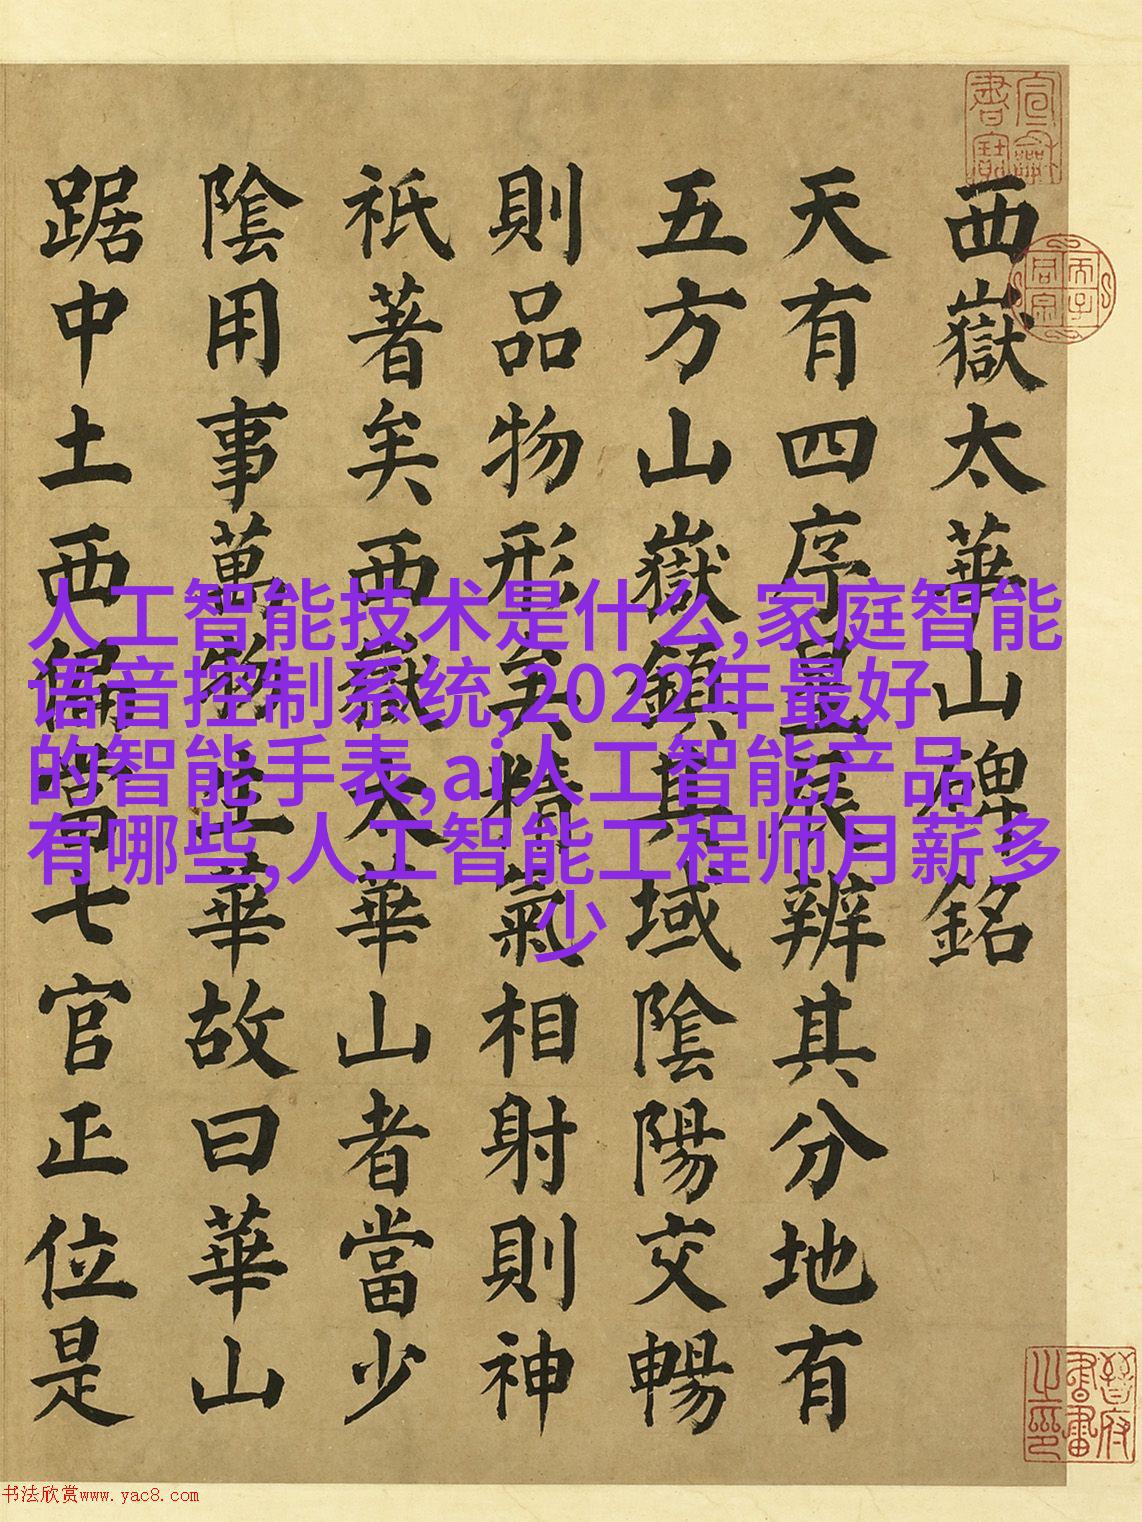 西嶽太華山碑銘
天有四序星辰辨其分地有
五方山嶽鎮其域陰陽交暢
則品物形矣精氣相射則神
祇著矣西嶽太華山者當少
陰用事萬物生華故曰華山
踞中土西偏當七官正位是
人工智能技术是什么,家庭智能
语音控制系统,2022年最好
的智能手表,ai人工智能产品
有哪些,人工智能工程师月薪多
少
晉府書畫之印
书法欣赏www.yac8.com